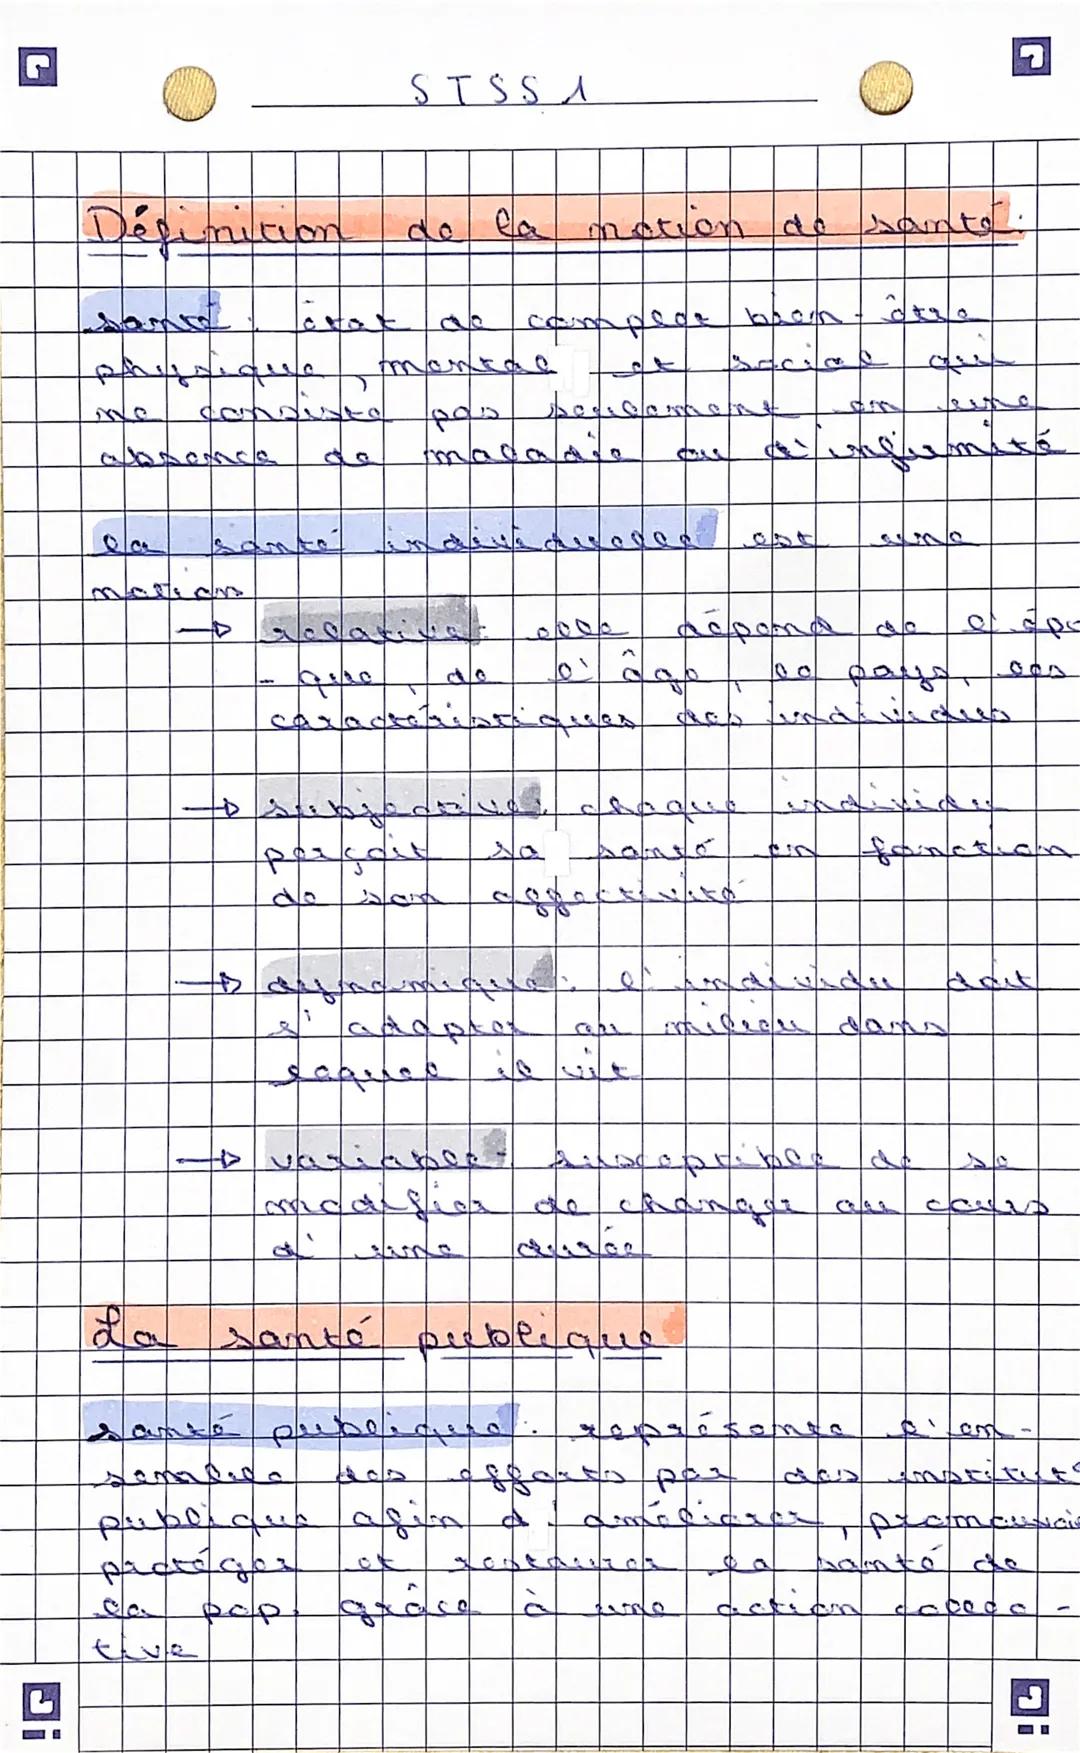 STSS 1
Définition de la notion de santé :
santé : état de complet bien-être
physique, mental et social qui
ne consiste pas seulement en une
absence de maladie ou d'infirmité
la santé individuelle est une
notion
→ relative : elle dépend de l'épo
- que, de l'âge, le pays, les
caractéristiques des individus
→ subjective : chaque individu
perçoit sa santé en fonction
de son affectivité
→ dynamique : l'individu doit
s'adapter au milieu dans
lequel il vit
→ variable : susceptible de se
modifier de changer au cours
d'une durée
La santé publique
santé publique : représente l'en-
semble des efforts par des institut°
publique afin d'améliorer, promouvoir
protéger et restaurer la santé de
la pop. grâce à une action collec-
tive